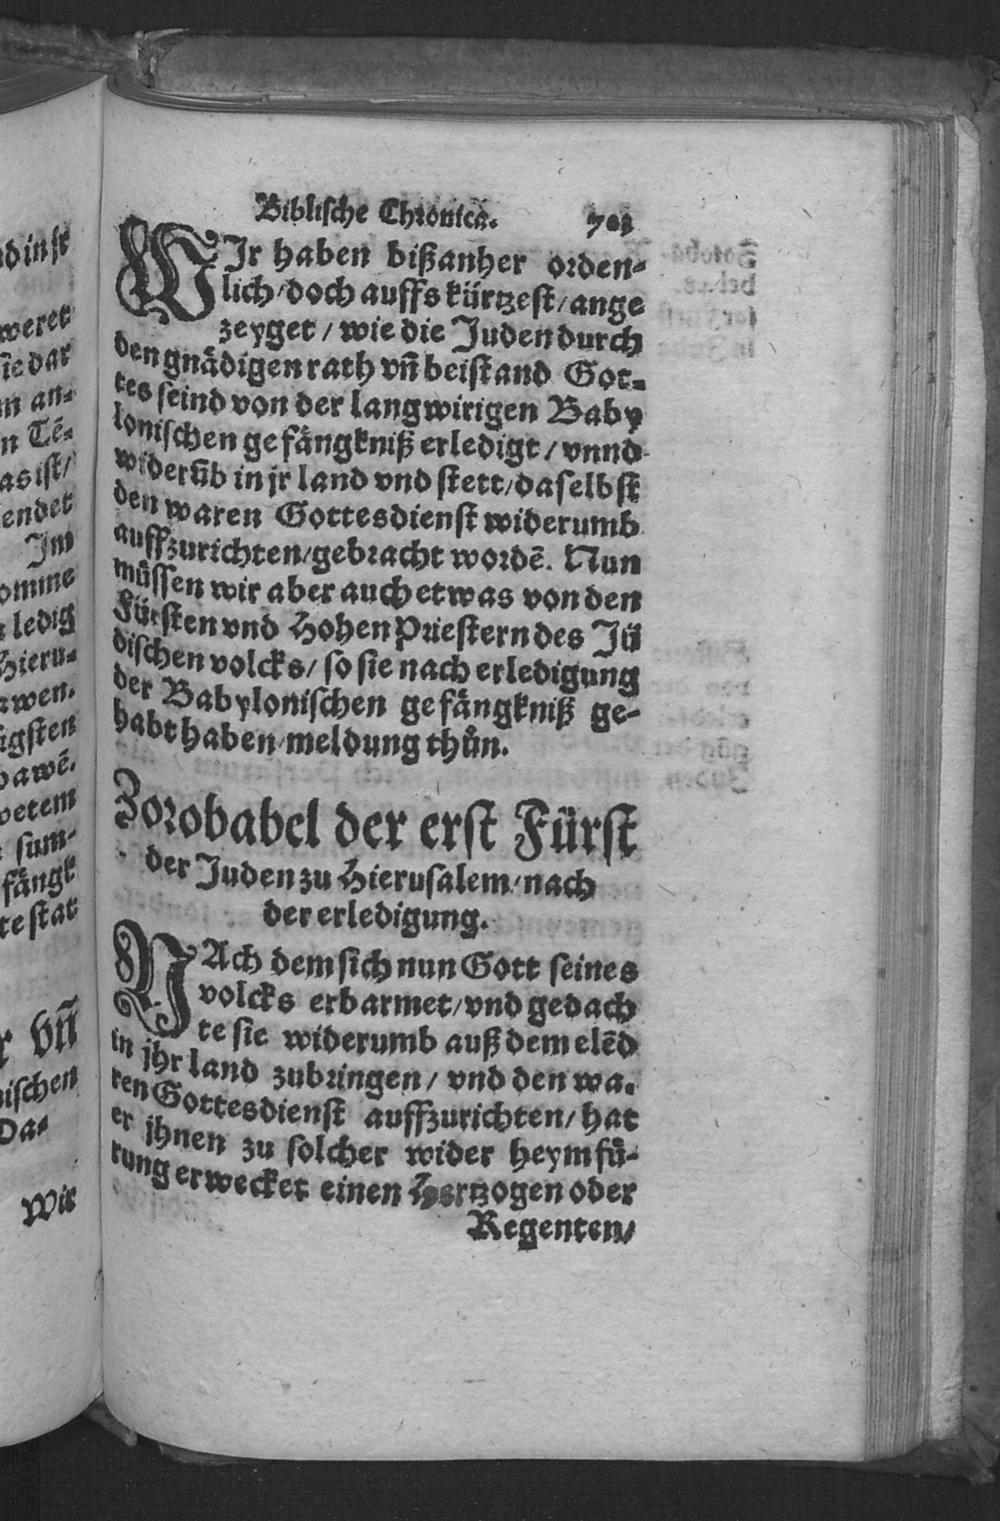 Biblische Chronica.
WIr haben bißanher orden-
lich/doch auffs kürtzest/ange
zeyget/wie die Juden durch
den gnädigen rath vn̄ beistand Got-
tes seind von der langwirigen Baby
lonischen gefängkniß erledigt/vnnd
widerūb in jr land vnd stett/daselbst
den waren Gottesdienst widerumb
auffzurichten/gebracht wordē. Nun
müssen wir aber auch etwas von den
Fürsten vnd Hohen Priestern des Jü
dischen volcks/so sie nach erledigung
der Babylonischen gefängkniß ge-
habt haben meldung thůn.
Zorobabel der erst Fürst
der Juden zu Hierusalem/nach
der erledigung.
NAch dem sich nun Gott seines
volcks erbarmet/vnd gedach
te sie widerumb auß dem elēd
in jhr land zubringen/vnd den wa-
ren Gottesdienst auffzurichten/hat
er jhnen zu solcher wider heymfů-
rung erwecket einen Hertzogen oder
Regenten/
nd in jr
weret
sie dar
m an-
n Tē-
as ist/
endet
Im
omme
ledig
Hieru-
awen.
gsten
bawē.
wetem
sum-
fängk
te stat
r vn̄
nischen
Da-
Wir